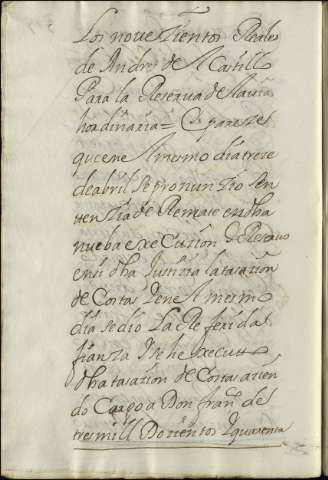 Los nouezientos Reales
de Andres del Castillo
Para la Reserua de la uia
hordinaria = Y pareze
que en el mismo dia treze
de abril se pronunzio sen
tenzia de Remate en dha
nueba execuzion Y Reseruo
en si dha Justizia la tasazion
de Costas Y en el mesmo
dia se dio La Referida
fianza Y se hexecuto
dha tasazion de Costas azien
do Cargo a Don fran.co de
tres mill Dozientos Y quarenta